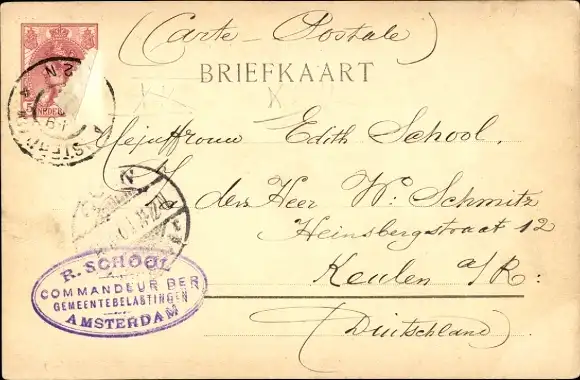 (Carte-Postale)
BRIEFKAART
Mejuffrouw Edith School.
p/a den Heer W. Schmitz
Heinsbergstraat 12
Keulen a/R:
(Duitschland)
R. SCHOOL
COMMANDEUR DER
GEMEENTEBELASTINGEN
AMSTERDAM